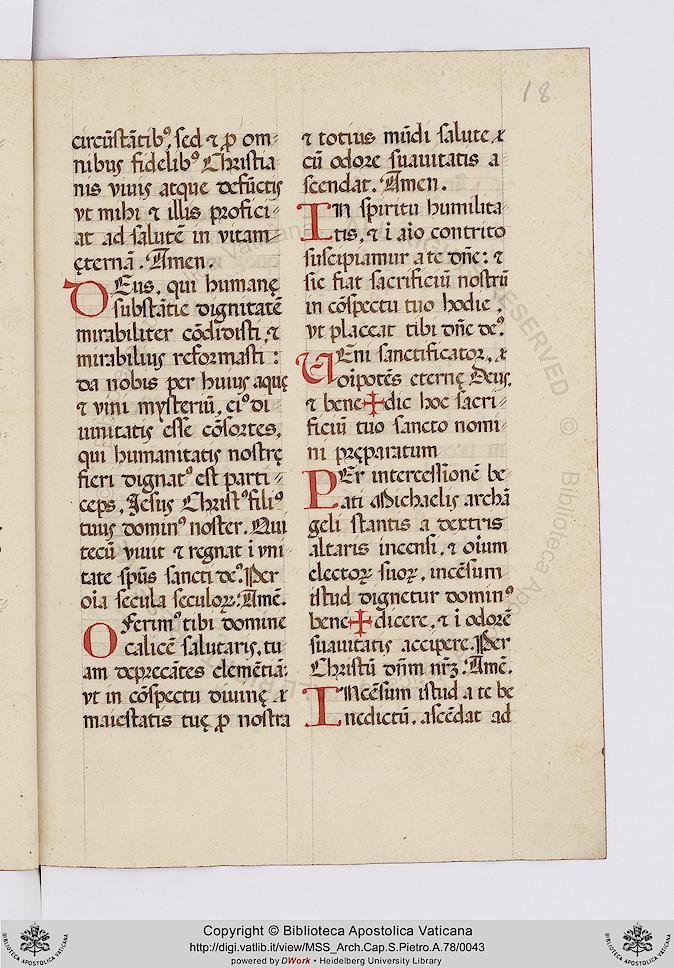 18
circũstãtibꝰ, sed ⁊ ꝓ om-
nibus fidelibꝰ Christia-
nis viuis atque defũctis
vt mihi ⁊ illis profici-
at ad salutẽ in vitam
ęternã. Amen.
DEus, qui humanę
substãtie dignitatẽ
mirabiliter cõdidisti, ⁊
mirabilius reformasti:
da nobis per huius aquę
⁊ vini mysteriũ, eiꝰ di-
uinitatis esse cõsortes,
qui humanitatis nostrę
fieri dignatꝰ est parti-
ceps, Jesus Christꝰ filiꝰ
tuus dominꝰ noster. Qui
tecũ viuit ⁊ regnat i vni-
tate spũs sancti deꝰ. Per
oĩa secula seculoꝝ: Amẽ.
OFerimꝰ tibi domine
calicẽ salutaris, tu-
am deprecãtes clemẽtiã:
vt in cõspectu diuinę
maiestatis tuę ꝓ nostra
⁊ totius mũdi salute
cũ odore suauitatis a-
scendat. Amen.
IN spiritu humilita-
tis, ⁊ i aĩo contrito
suscipiamur a te dñe: ⁊
sic fiat sacrificiũ nostrũ
in cõspectu tuo hodie,
vt placeat tibi dñe deꝰ.
UEni sanctificator,
oĩpotẽs eternę Deus,
⁊ bene✠dic hoc sacri-
ficiũ tuo sancto nomi-
ni pręparatum
PEr intercessionẽ be-
ati Michaelis archã-
geli stantis a dextris
altaris incensi, ⁊ oĩum
electoꝝ suoꝝ, incẽsum
istud dignetur dominꝰ
bene✠dicere, ⁊ i odorẽ
suauitatis accipere. Per
Christũ dñm nrꝫ: Amẽ.
INcẽsum istud a te be-
nedictũ, ascẽdat ad
Copyright © Biblioteca Apostolica Vaticana
http://digi.vatlib.it/view/MSS_Arch.Cap.S.Pietro.A.78/0043
powered by DWork • Heidelberg University Library